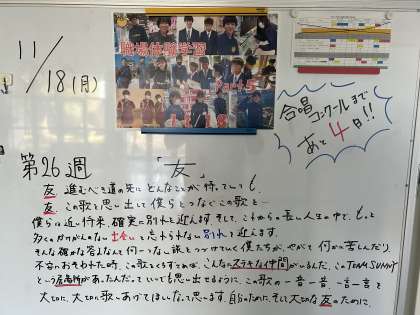 11/18(月)
職場体験学習
合唱
コンクールまで
あと4日!!
第26週 「友」
友 進むべき道の先に どんなことが 待っていても
友 この歌を思い出して 僕らをつなぐこの歌を…
僕らは近い将来、確実に別れを迎えます。そして、これからの長い人生の中で、もっと
多くのかけがえのない出会いと忘れられない別れを迎えます。
そんな確かな答えなんて何一つない旅をつづけていく僕たちが、やがて何かに苦しんだり
不安におそわれた時、この歌をくちずさめば、こんなにステキな仲間がいるんだ、このTEAM SUNNY
という居場所があったんだっていつでも思い出せるように、この歌の一音一音、一言一言を
大切に、大切に歌いあげてほしいなって思います。自分のために、そして大切な友のために。